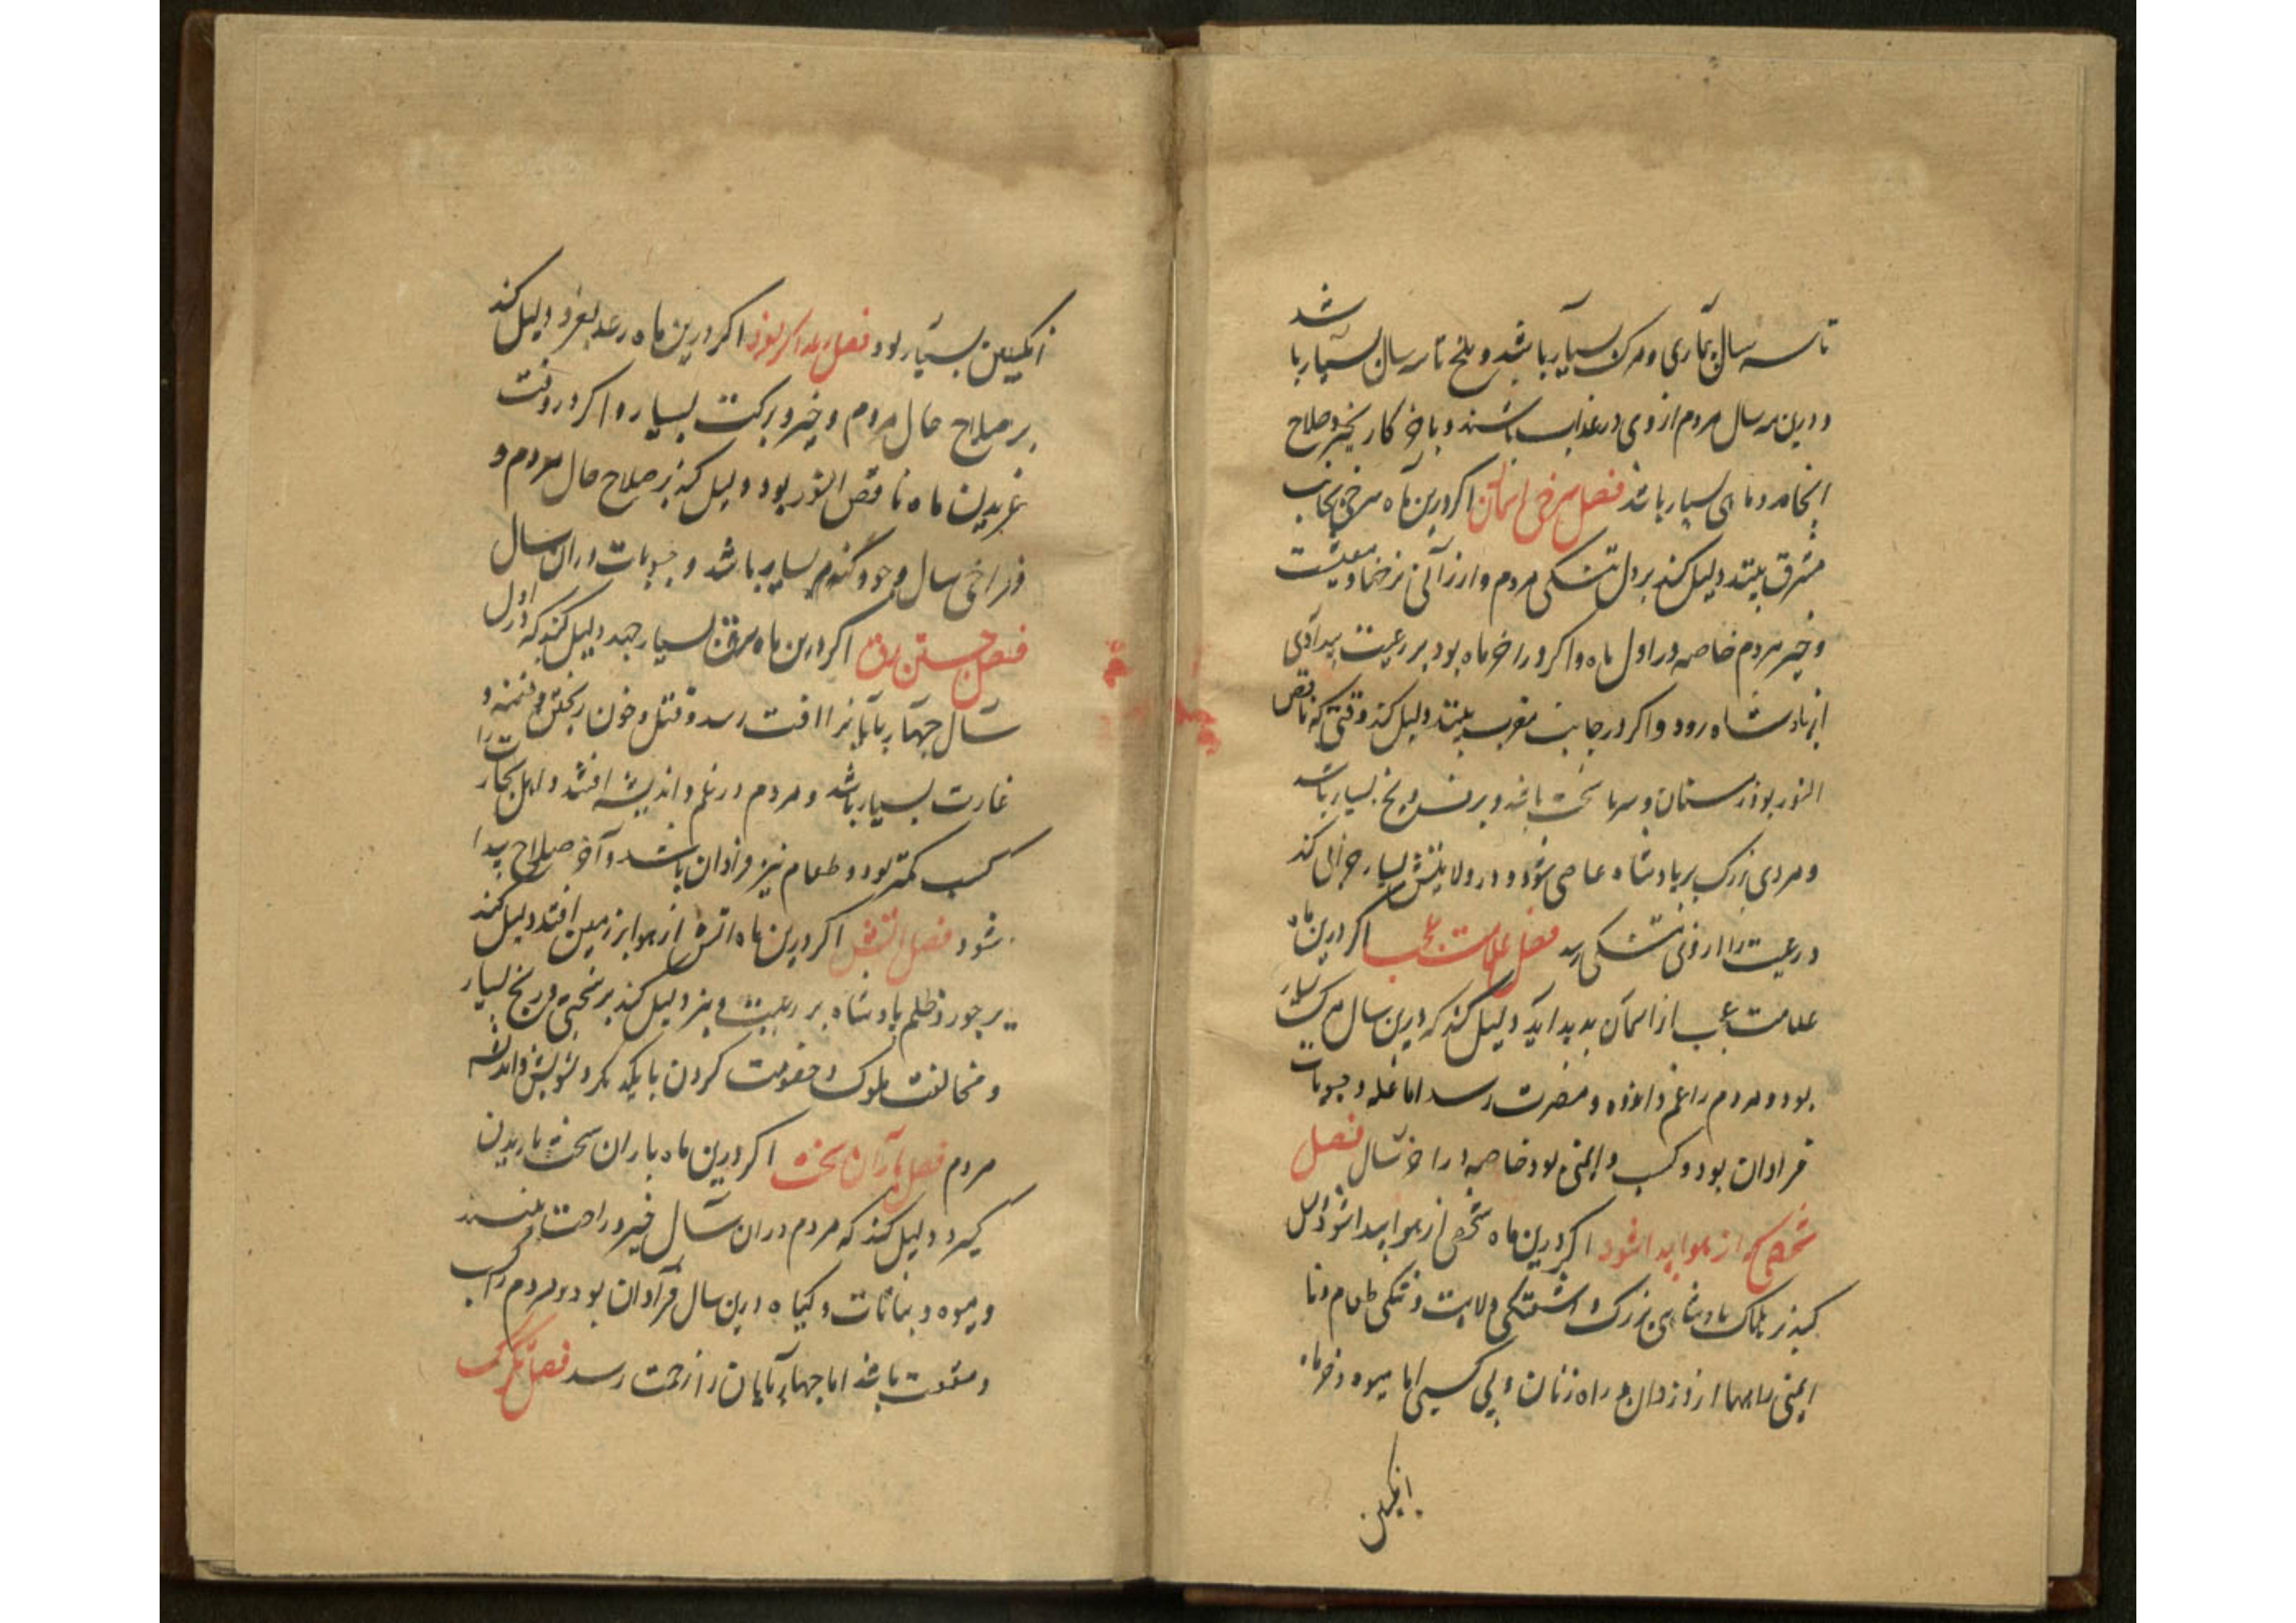 تا سه سال بیماری و مرک بسیار باشد و ملخ تا سه سال بسیار باشد
و درین سه سال مردم از وی در عذاب باشند و باخر کار بخیر و صلاح
انجامد و ماهی بسیار باشد فصل سرخی اسمان اکر درین ماه سرخی بجانب
مشرق بینند دلیل کند بر دل تنکی مردم و ارزانی نرخها و معیشت
و خیر مردم خاصه در اول ماه و اکر در اخر ماه بود بر رعیت بیدادی
از پادشاه رود و اکر در جانب مغرب بینند دلیل کند وقتی که ناقص
النور بود زمستان و سرما سخت باشد و برف و یخ بسیار باشد
و مردی بزرک بر پادشاه عاصی شود و در ولایتش بسیار خرابی کند
و رعیت را از وی تنکی رسد فصل علامت عجب اکر درین ماه
علامت عجب از اسمان پدید اید دلیل کند که درین سال مرک بسیار
بود و مردم را غم و اندوه و مضرت رسد اما غله و حبوبات
فراوان بود و کسب و ایمنی بود خاصه در اخر سال فصل
شخصی که از هوا پیدا شود اکر درین ماه شخصی از هوا پیدا شود دلیل
کند بر هلاک پادشاهی بزرک و اشفتکی ولایت و تنکی طعام و نا
ایمنی راهها از دزدان و راه زنان و بی کسبی اما میوه و خرما و
انکبین
انکبین بسیار بود فصل رعد اکر بغرد اکر درین ماه رعد بغرد دلیل کند
بر صلاح حال مردم و خیر و برکت بسیار و اکر در وقت
غریدن ماه ناقص النور بود دلیل کند بر صلاح حال مردم و
فراخی سال و جو و کندم بسیار باشد و حبوبات در ان سال
فصل جستن برق اکر درین ماه برق بسیار جهد دلیل کند که در اول
سال چهارپایانرا افت رسد و قتل و خون ریختن و فتنه و
غارت بسیار باشد و مردم در غم و اندیشه افتند و اهل تجارت را
کسب کمتر بود و طعام نیز فراوان باشد و آخر صلاح پیدا
شود فصل اتش اکر درین ماه اتش از هوا بر زمین افتد دلیل کند
بر جور و ظلم پادشاه بر رعیت و نیز دلیل کند بر سختی و رنج بسیار
و مخالفت ملوک و خصومت کردن با یکدیکر و تشویش و اندیشه
مردم فصل باران سخت اکر درین ماه باران سخت باریدن
کیرد دلیل کند که مردم دران سال خیر و راحت بینند
و میوه و نباتات و کیاه درین سال فراوان بود و مردم را کسب
و منفعت باشد اما چهارپایان را زحمت رسد فصل تکرک